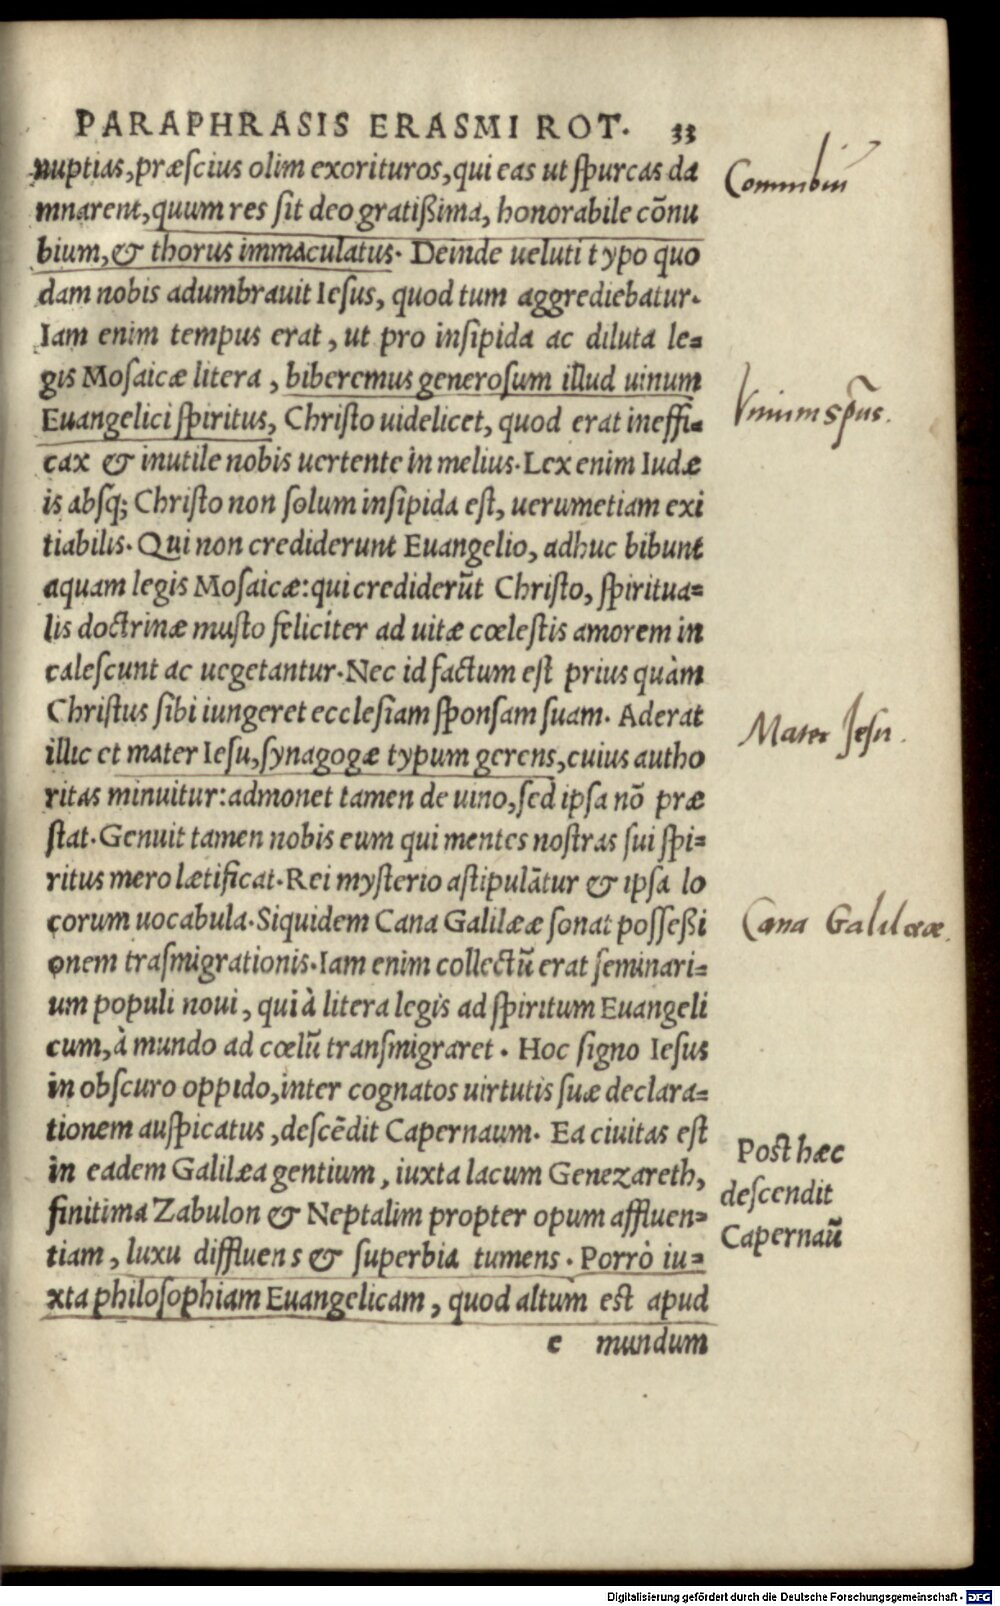 PARAPHRASIS ERASMI ROT. 33
nuptias, præscius olim exorituros, qui eas ut spurcas da
mnarent, quum res sit deo gratißima, honorabile cōnu
bium, & thorus immaculatus. Deinde ueluti typo quo
dam nobis adumbrauit Iesus, quod tum aggrediebatur.
Iam enim tempus erat, ut pro insipida ac diluta le=
gis Mosaicæ litera, biberemus generosum illud uinum
Euangelici spiritus, Christo uidelicet, quod erat ineffi=
cax & inutile nobis uertente in melius. Lex enim Iudæ
is absq; Christo non solum insipida est, uerumetiam exi
tiabilis. Qui non crediderunt Euangelio, adhuc bibunt
aquam legis Mosaicæ: qui crediderūt Christo, spiritua=
lis doctrinæ musto feliciter ad uitæ cœlestis amorem in
calescunt ac uegetantur. Nec id factum est prius quàm
Christus sibi iungeret ecclesiam sponsam suam. Aderat
illic et mater Iesu, synagogæ typum gerens, cuius autho
ritas minuitur: admonet tamen de uino, sed ipsa nō præ
stat. Genuit tamen nobis eum qui mentes nostras sui spi=
ritus mero lætificat. Rei mysterio astipulātur & ipsa lo
corum uocabula. Siquidem Cana Galilææ sonat possessi
onem trāsmigrationis. Iam enim collectū erat seminari=
um populi noui, qui à litera legis ad spiritum Euangeli
cum, à mundo ad cœlū transmigraret. Hoc signo Iesus
in obscuro oppido, inter cognatos uirtutis suæ declara=
tionem auspicatus, descēdit Capernaum. Ea ciuitas est
in eadem Galilæa gentium, iuxta lacum Genezareth,
finitima Zabulon & Neptalim propter opum affluen=
tiam, luxu diffluens & superbia tumens. Porrò iu=
xta philosophiam Euangelicam, quod altum est apud
c mundum
Connubiū
Vinum spūs.
Mater Jesu.
Cana Galilææ.
Post hæc
descendit
Capernaū
Digitalisierung gefördert durch die Deutsche Forschungsgemeinschaft - DFG